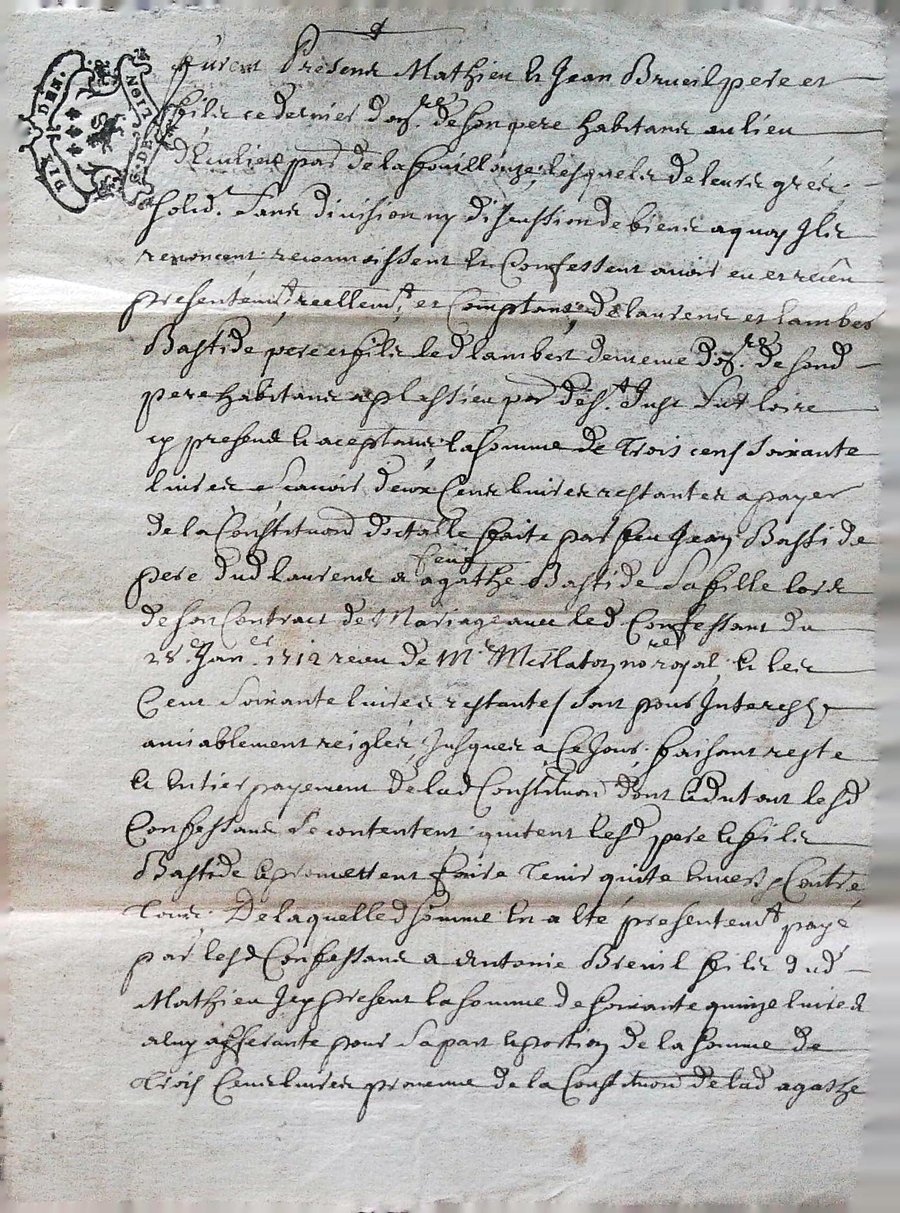 DIX DEN.
G. DE LION
furent Presens Mathieu & Jean Brueil pere et
fils ce dernier de son pere habitans au lieu
par de la fouillouze, lesquels de leurs grés
solid.t sans division ny discussion de biens a quoy Ils
renoncent reconnoissent & Confessent avoir eu et reçeu
presentem.t, reellem.t, et Comptant, de laurens et lambert
Bastide pere et fils led lambert de meme de sond
pere habitans a plessieu par de s.t Just sur loire
cy presens & aceptans, la somme de Trois cens soixante
livres scavoir deux Cens livres restantes a payer
de la Constituōn dotalle faite par feu Jean Bastide
pere dud laurens a feue agathe Bastide sa fille lors
de son Contract de Mariage avec led Confessant du
28.e Jan.er 1712 receu de M.e Merlaton no.re royal, & les
Cent soixante livres restantes sont pour Interests
amiablement reiglés, Jusques a Ce Jour, faisant reste
& entier payement de lad Constituōn dont & du tout lesd
Confessans se contentent quitent lesd pere & fils
Bastide & promettent faire tenir quite envers & Contre
Tous. De laquelle d somme En a Eté presentem.t payé
par lesd Confessans a Antoine Breuil fils dud
Mathieu Icy present la somme de soixante quinze livres
a luy afferante pour sa part & portion de la somme de
Trois Cens livres provenue de la Constituōn de lad agathe